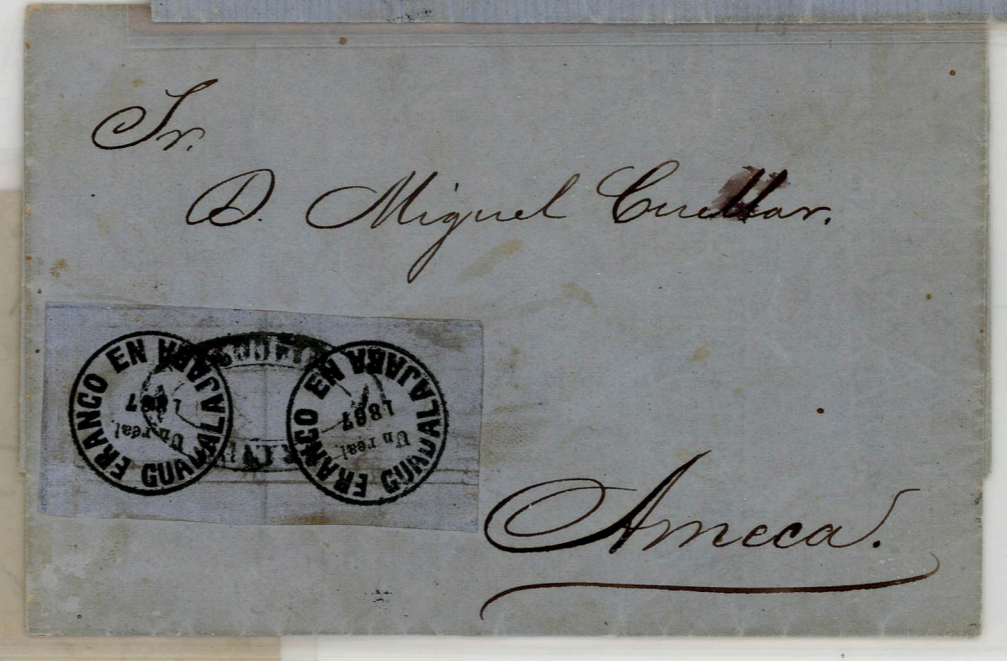 Sr.
D. Miguel Cuellar.
FRANCO EN GUADALAJARA
Un real
1867
FRANCO EN GUADALAJARA
Un real
1867
Ameca.